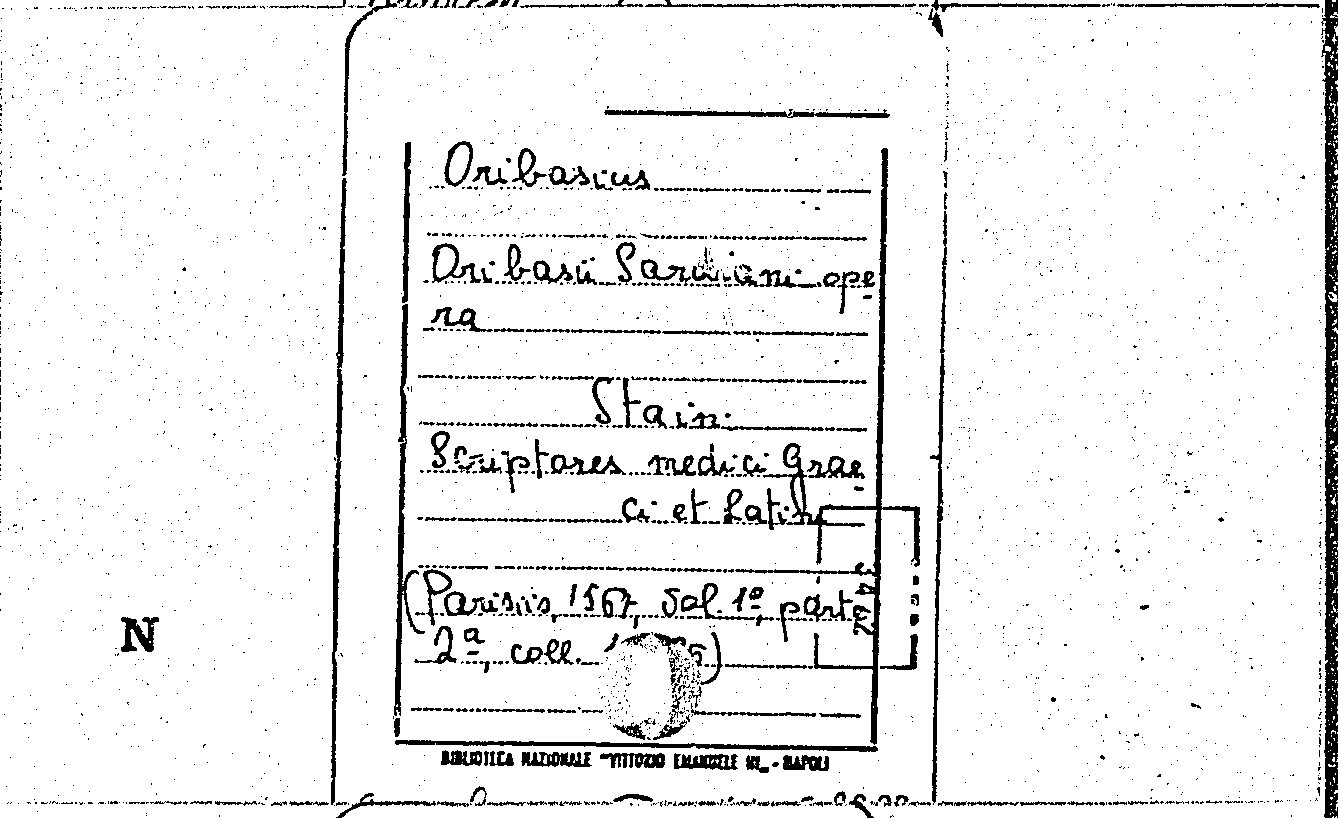 Oribasius
Oribasii Sardiani ope-
ra
Sta in:
Scriptores medici Grae-
ci et Latini
(Parisiis, 1567, Vol. 1º, parte
2ª, coll.
3462
N
BIBLIOTECA NAZIONALE "VITTORIO EMANUELE III" - NAPOLI